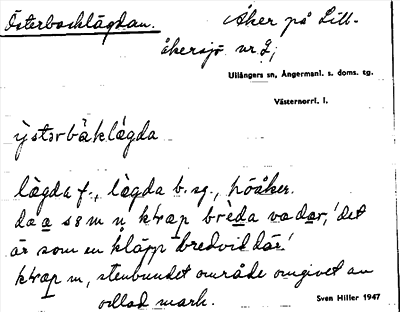 Österbacklägdan.
Åker på Lill-
åkersjö nr 2;
Ullångers sn, Ångermanl. s. doms. tg.
Västernorrl. l.
ỳstərbàklǻgda
lǻgda f., lǻgda b. sg., hóåker.
da a səm n kɫrap brèda va dar, 'det
är som en kläpp bredvid där.'
kɫrap m, stenbundet område omgivet av
odlad mark.
Sven Hiller 1947